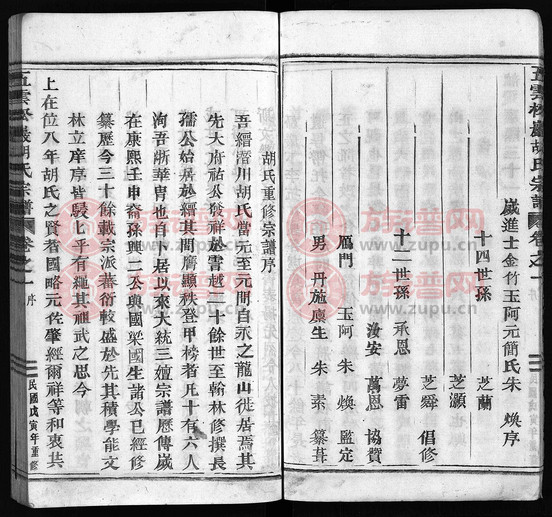 五雲松巖胡氏宗譜
歲進士金竹玉阿元簡氏朱 煥序
十四世孫 芝蘭
芝灝
芝舜 倡修
十二世孫 承恩 夢雷
汝安 萬恩 協贊
眉門 玉阿 朱 煥 監定
男 丹施廩生 朱 素 纂葺
胡氏重修宗譜序
吾縉潛川胡氏當元至元間自永之龍山徙居焉其
先大府祐公發祥於霅越二十餘世至翰林修撰長
孺公始居於縉其間膺纁秩登甲榜者凡十有六人
洵吾浙華冑也自卜居以來大統三嬗宗譜歷傳歲
在康熙壬申裔孫興二公與國梁國生諸公已經修
纂歷今三十餘載宗派蕃衍較盛於先其積學能文
林立庠序皆駸七乎有繩其祖武之思今
上在位八年胡氏之賢者國略元佐肇經爾祥等和衷共
五雲松巖胡氏宗譜 卷之一 序
民國戊寅年重修
族譜网
www.zupu.cn
族譜网
www.zupu.cn